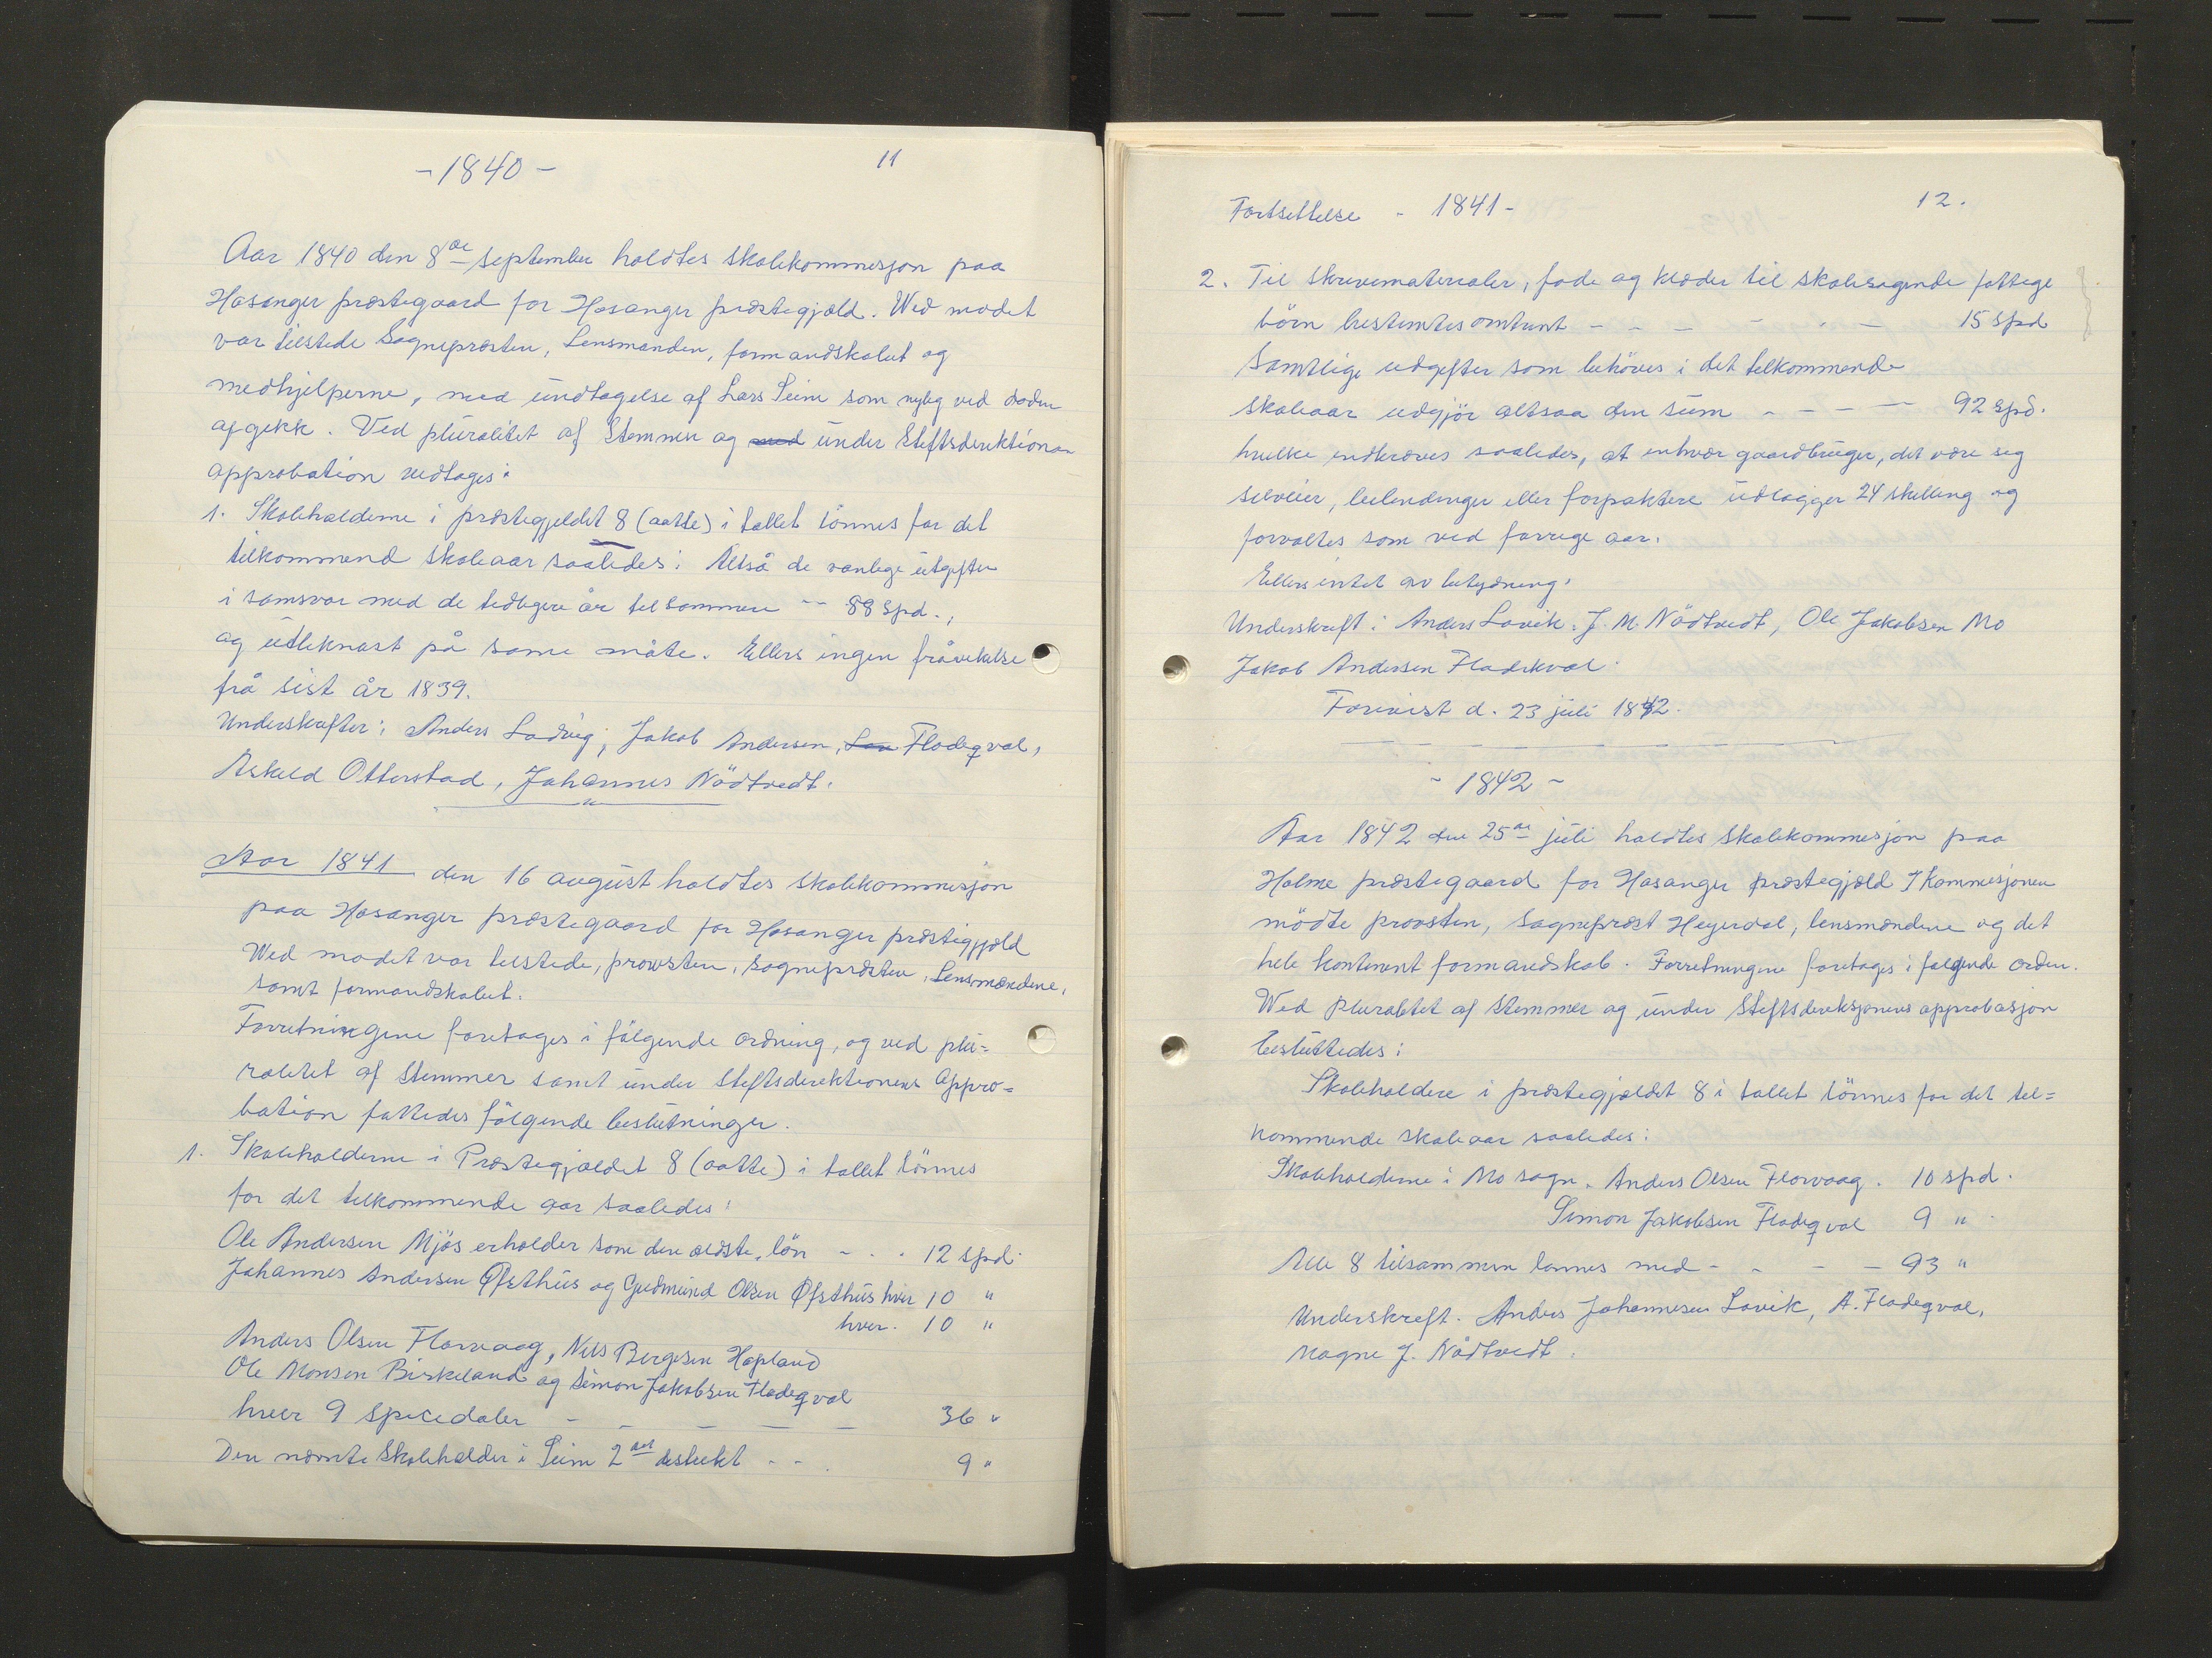 - 1840 -
11
Aar 1840 den 8de september holdtes skolekommisjon paa
Hosanger præstegaard for Hosanger præstegjæld. Wed modet
var tilstede Sognepræsten, Lensmanden, formandskabet og
medhjelperne, med undtagelse af Lars Seim som nylig ved døden
afgikk. Ved pluralitet af Stemmer og med under Stiftsdirektionen
approbation vedtages:
1. Skoleholderne i præstegjeldet 8 (aatte) i tallet lönnes for det
tilkommend skoleaar saaledes: Altså de vanlege utgifter
i samsvar med de tidligere år tilsammen -- 88 Spd.,
og utliknast på same måte. Ellers ingen fråvikelse
frå sist år 1839.
Underskrifter: Anders Ladvig, Jakob Andersen, Flodeqval,
Askild Otterstad, Johannes Nödtvedt.
Aar 1841 den 16 august holdtes skolekommisjon
paa Hosanger præstegaard for Hosanger præstigjæld
Wed modet var tilstede, prowsten, sognepræsten, Lensmændene,
samt formandskabet.
Forretningene foretages i fölgende ordning, og ved plu=
ralitet af Stemmer samt under Stiftsdirektionens Appro=
bation fattedes fölgende beslutninger.
1. Skoleholderne i Præstegjældet 8 (aatte) i tallet lönnes
for det tilkommende aar saaledes:
Ole Andersen Mjös erholder som den ældste, lön - - - 12 spd.
Johannes Andersen Øfsthus og Gudmund Olsen Øfsthus hver 10 "
hver. 10 "
Anders Olsen Florvaag, Nils Birgesen Hopland
Ole Monsen Birkeland og Simon Jakobsen Flodeqval
hver 9 Specedaler - - - - - 36 "
Den nævnte Skoleholder i Seim 2det distrikt - - . 9 "
Fortsettelse - 1841 -
12.
2. Til skrivematerialer, føde og klæder til skolesøgende fattige
börn bestemtes omtrent - - - - - - 15 spd
Samtlige udgifter som behöves i det tilkommende
skoleaar udgjör altsaa den sum - - - - 92 spd.
hvilke indkræves saaledes, at enhvær gaardbruger, det være seg
selveier, leilendinger eller forpaktere udlægger 24 skilling og
forvaltes som ved forrige aar.
Ellers intet av betydning.
Underskrift: Anders Lavik. J. M. Nödtvedt, Ole Jakobsen Mo
Jakob Andersen Fladekval.
Forevist d. 23 juli 1842.
- 1842 -
Aar 1842 den 25de juli holdtes skolekommisjon paa
Holme præstegaard for Hosanger præstegjæld I Kommisjonen
mödte provsten, Sogneprest Heyerdal, lensmændene og det
hele kontinent formandskab. Forretningene foretages i følgende orden.
Wed pluralitet af stemmer og under Stiftsdireksjonens approbasjon
besluttedes:
Skoleholdere i præstegjældet 8 i tallet lönnes for det til=
kommende skoleaar saaledes:
Skoleholderne i Mo sogn. Anders Olsen Florvaag. 10 spd.
Simon Jakobsen Flodeqval 9 "
Alle 8 tilsammen lønnes med - - - - 93 "
Underskrift. Anders Johannesen Lavik, A. Fladeqval,
Magne J. Nådtvedt.